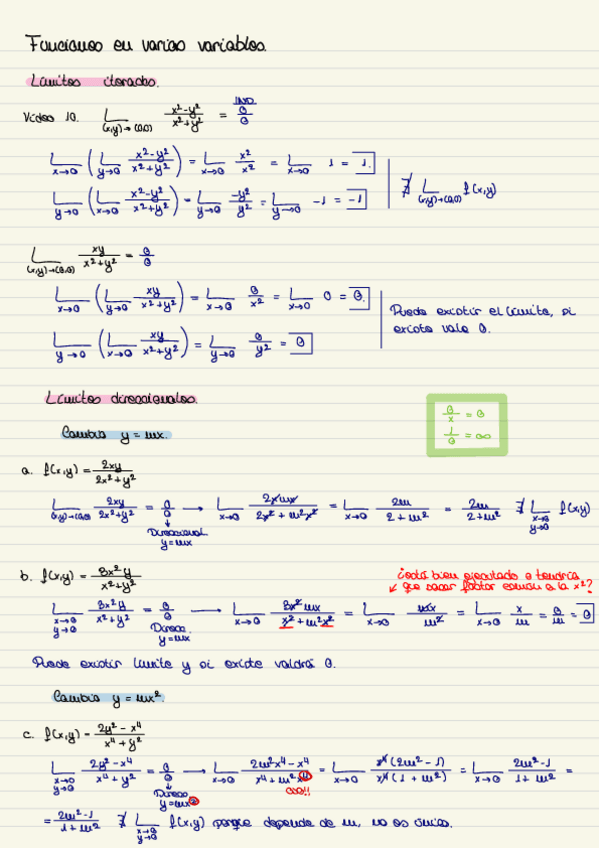 Funciones en varias variables.
Límites iterados.
Vídeo 10. L (x,y)→(0,0) x²-y² / x²+y² = 0/0 IND
L x→0 ( L y→0 x²-y² / x²+y² ) = L x→0 x²/x² = L x→0 1 = 1.
L y→0 ( L x→0 x²-y² / x²+y² ) = L y→0 -y²/y² = L y→0 -1 = -1
∄ L (x,y)→(0,0) f(x,y)
L (x,y)→(0,0) xy / x²+y² = 0/0
L x→0 ( L y→0 xy / x²+y² ) = L x→0 0/x² = L x→0 0 = 0.
L y→0 ( L x→0 xy / x²+y² ) = L y→0 0/y² = 0
Puede existir el límite, si
existe vale 0.
Límites direccionales.
0/x = 0
1/0 = ∞
Cambio y = mx.
a. f(x,y) = 2xy / 2x²+y²
L (x,y)→(0,0) 2xy / 2x²+y² = 0/0 → L x→0 2xmx / 2x²+m²x² = L x→0 2m / 2+m² = 2m / 2+m² ∄ L x→0 y→0 f(x,y)
Direccional
y=mx
b. f(x,y) = 3x²y / x²+y²
¿está bien ejecutado o tendría
que sacar factor común a la x²?
L x→0 y→0 3x²y / x²+y² = 0/0 → L x→0 3x²mx / x²+m²x² = L x→0 mx / m² = L x→0 x/m = 0/m = 0
Direcc.
y=mx
Puede existir límite y si existe valdrá 0.
Cambio y = mx².
c. f(x,y) = 2y²-x⁴ / x⁴+y²
L x→0 y→0 2y²-x⁴ / x⁴+y² = 0/0 → L x→0 2m²x⁴-x⁴ / x⁴+m²x⁴ = L x→0 x⁴(2m²-1) / x⁴(1+m²) = L x→0 2m²-1 / 1+m² =
Direcc
y=mx²
ojo!!
= 2m²-1 / 1+m² ∄ L x→0 y→0 f(x,y) porque depende de m, no es único.